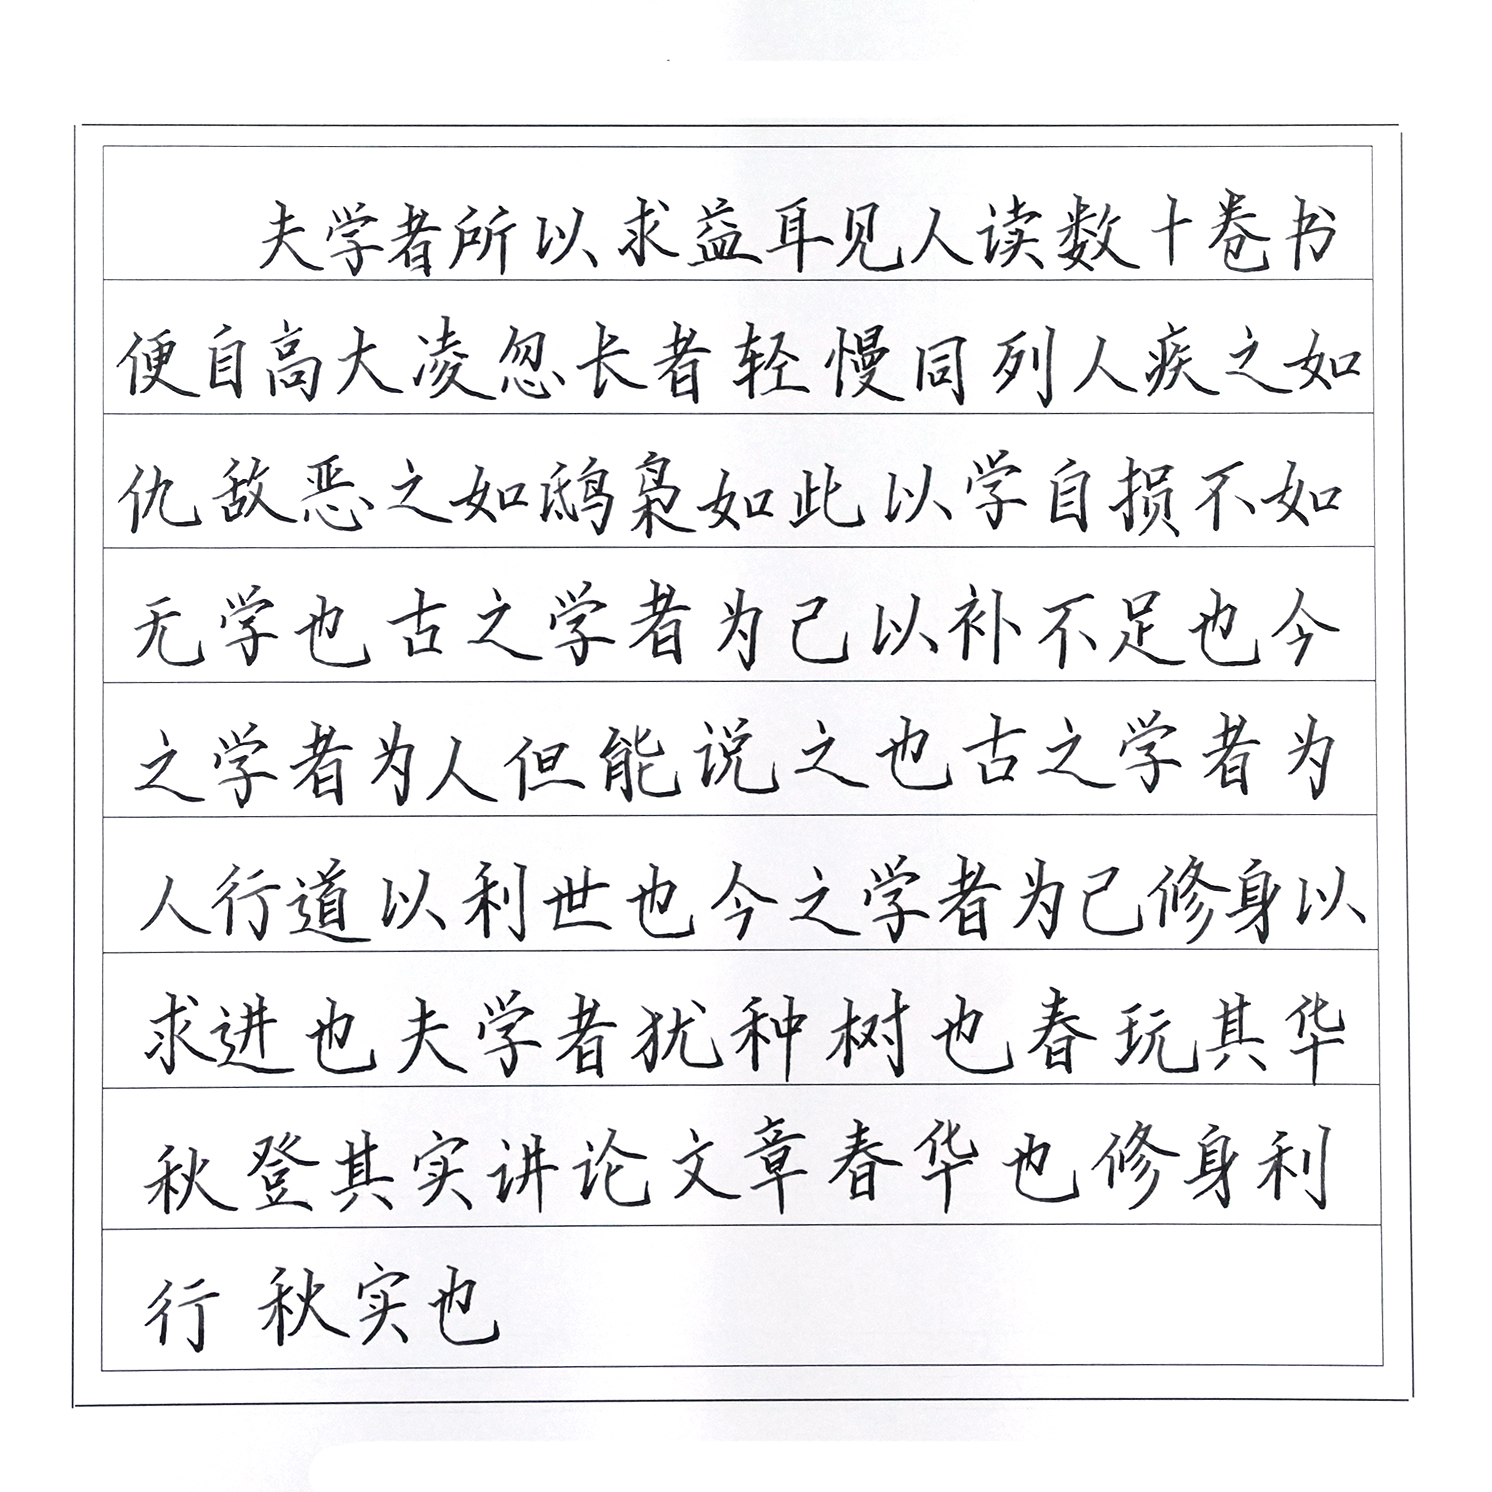 夫学者所以求益耳见人读数十卷书
便自高大凌忽长者轻慢同列人疾之如
仇敌恶之如鸱枭如此以学自损不如
无学也古之学者为己以补不足也今
之学者为人但能说之也古之学者为
人行道以利世也今之学者为己修身以
求进也夫学者犹种树也春玩其华
秋登其实讲论文章春华也修身利
行秋实也